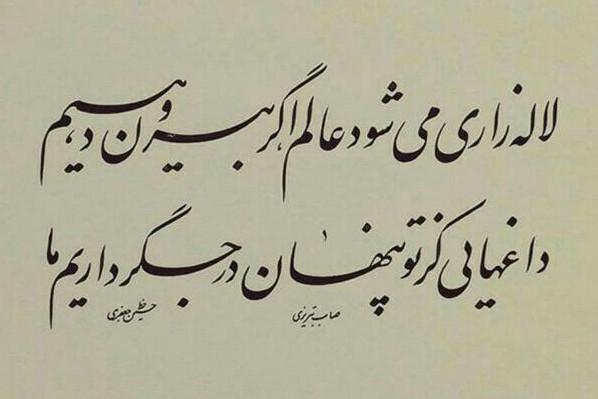 لاله زاری می شود عالم اگر بیرون دهیم
داغهایی کز تو پنهان در جگر داریم ما
صائب تبریزی جعفری